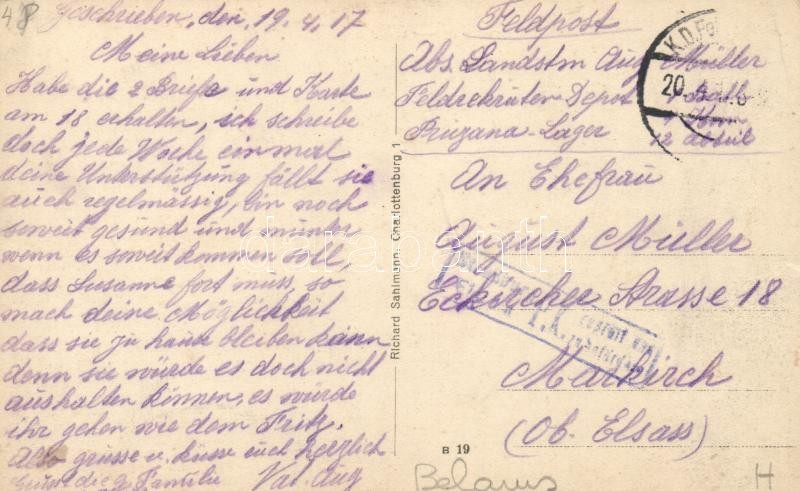 48
Geschrieben, den, 19.4.17
Meine Lieben
Habe die 2 Briefe und Karte
am 18 erhalten, ich schreibe
doch jede Woche einmal
deine Unterstützung fällt sie
auch regelmässig, bin noch
soweit gesund und munter
wenn es soweit kommen soll,
dass Susanne fort muss, so
mach deine Möglichkeit
dass sie zu hause bleiben kann
denn sie würde es doch nicht
aushalten können, es würde
ihr gehen wie dem Fritz.
Also grüsse u. küsse euch herzlich
die Familie Vat. Aug
Richard Sahlmann, Charlottenburg 1
Feldpost
Abs. Landstm Aug Müller
Feldrekruten Depot
Pruzana-Lager
K.D. Fe
20.
An Ehefrau
August Müller
Eckircher Strasse 18
Markirch
(Ob. Elsass)
B 19
Belarus
H
darabanth